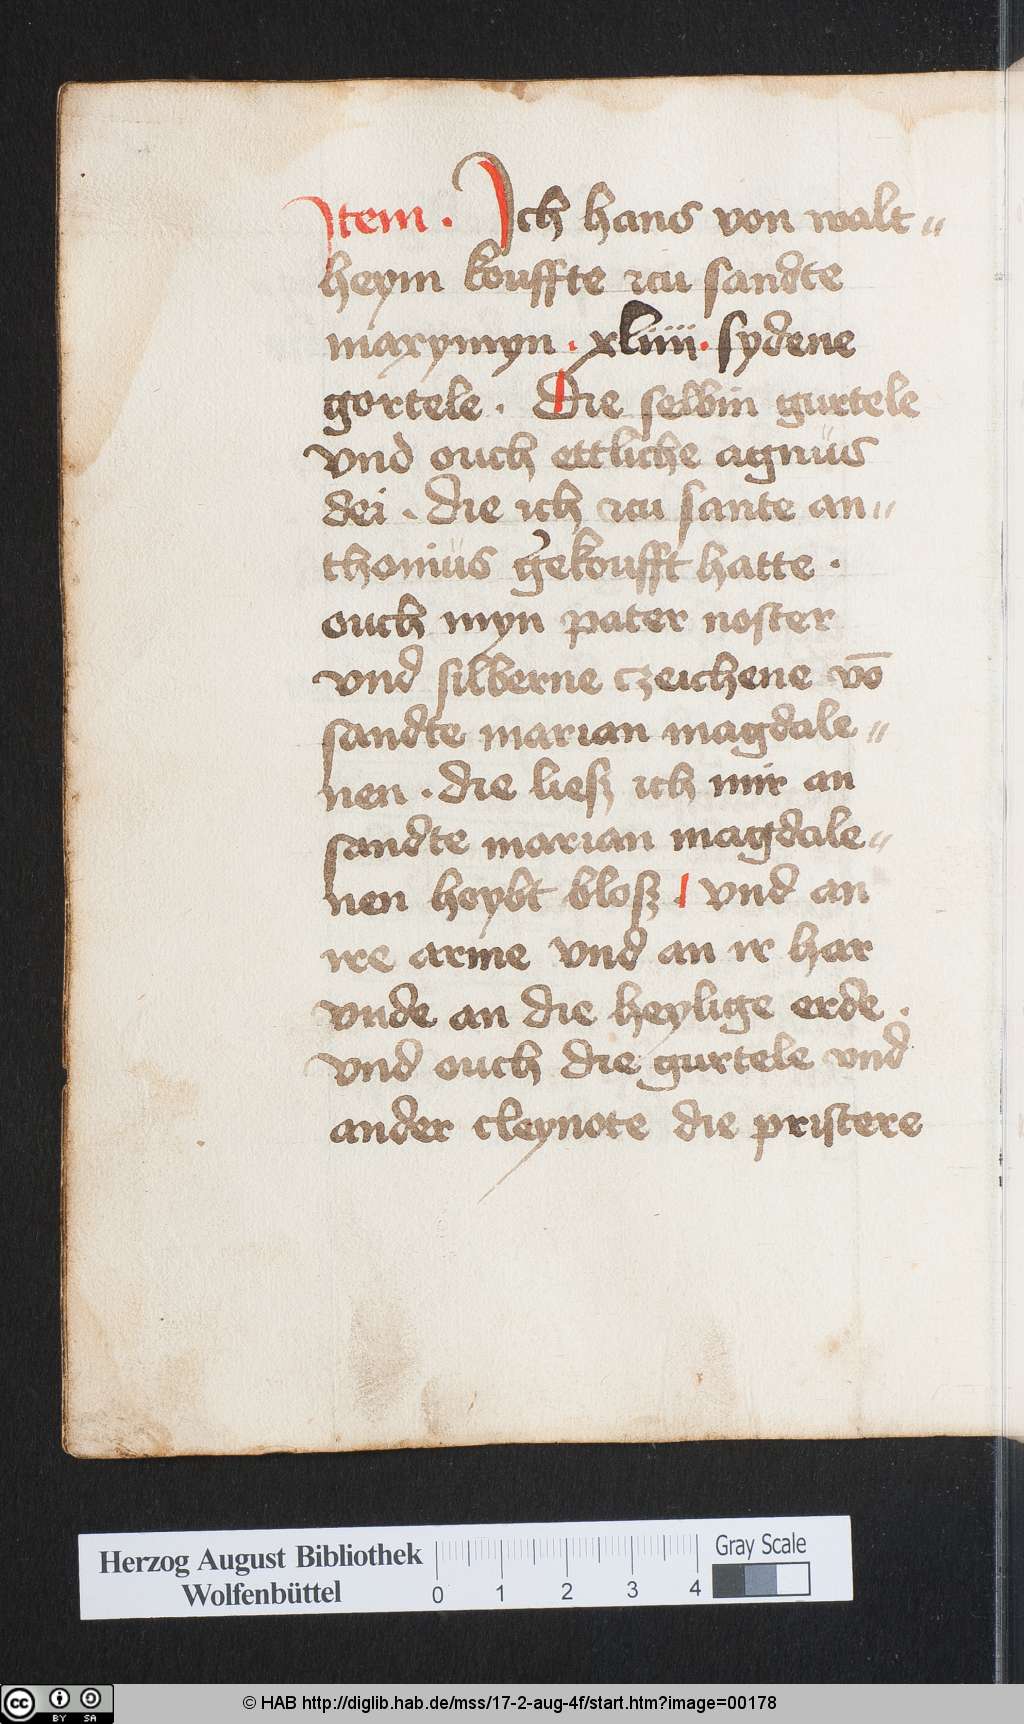 Item · Ich hans von walt⸗
heym kouffte zcu sandte
maxymyn · xliiii · sydene
gortele · Die selbin gurtele
vnd ouch ettliche agnus
dei · die ich zcu sante an⸗
thonius gekoufft hatte ·
ouch myn pater noster
vnd silberne czeichene vō
sandte marian magdale⸗
nen · die liesz ich mir an
sandte marian magdale⸗
nen hoybt blosz · vnd an
ire arme vnd an ir har
vnde an die heylige erde ·
vnd ouch die gurtele vnd
ander cleynote die pristere
Herzog August Bibliothek
Wolfenbüttel
0 1 2 3 4
Gray Scale
cc BY SA
© HAB http://diglib.hab.de/mss/17-2-aug-4f/start.htm?image=00178